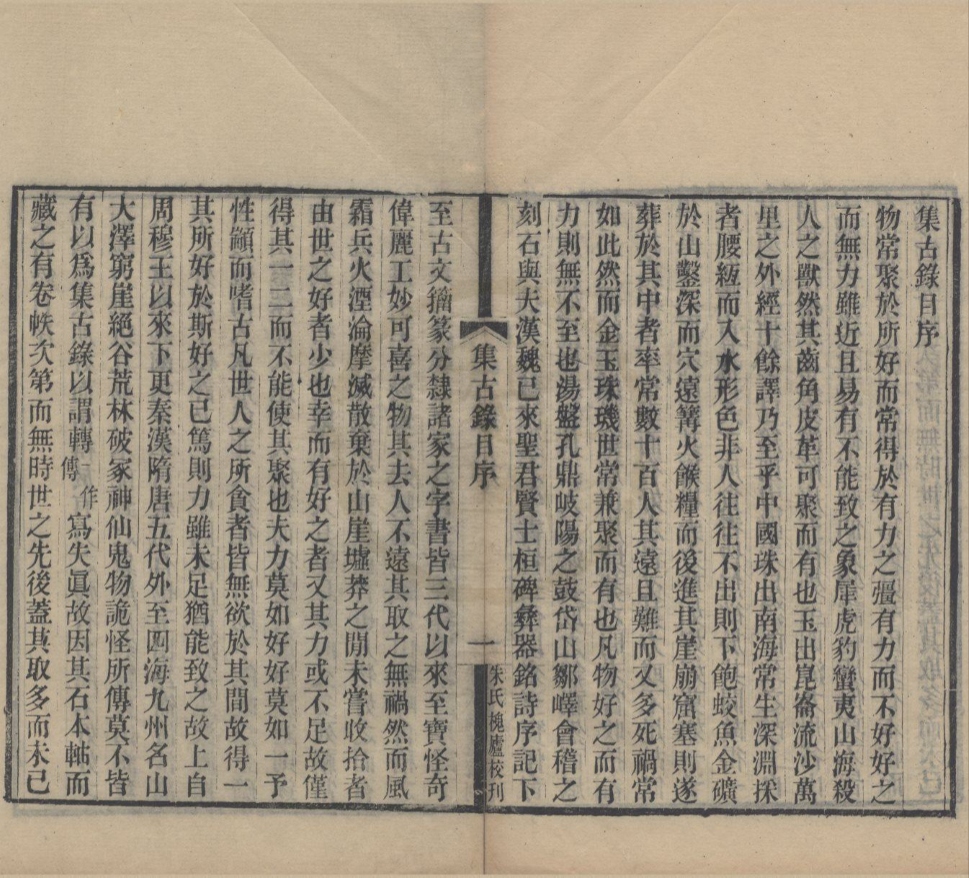 集古錄目序
物常聚於所好而常得於有力之彊有力而不好好之
而無力雖近且易有不能致之象犀虎豹蠻夷山海殺
人之獸然其齒角皮革可聚而有也玉出崑崙流沙萬
里之外經十餘譯乃至乎中國珠出南海常生深淵採
者腰絙而入水形色非人往往不出則下飽蛟魚金礦
於山鑿深而穴遠篝火餱糧而後進其崖崩窟塞則遂
葬於其中者率常數十百人其遠且難而又多死禍常
如此然而金玉珠璣世常兼聚而有也凡物好之而有
力則無不至也湯盤孔鼎岐陽之鼓岱山鄒嶧會稽之
刻石與夫漢魏已來聖君賢士桓碑彝器銘詩序記下
集古錄目序
一
朱氏槐廬校刊
至古文籀篆分隸諸家之字書皆三代以來至寶怪奇
偉麗工妙可喜之物其去人不遠其取之無禍然而風
霜兵火湮淪摩滅散棄於山崖墟莽之間未嘗收拾者
由世之好者少也幸而有好之者又其力或不足故僅
得其一二而不能使其聚也夫力莫如好好莫如一予
性顓而嗜古凡世人之所貪者皆無欲於其間故得一
其所好於斯好之已篤則力雖未足猶能致之故上自
周穆王以來下更秦漢隋唐五代外至四海九州名山
大澤窮崖絕谷荒林破冢神仙鬼物詭怪所傳莫不皆
有以爲集古錄以謂轉一作傳寫失眞故因其石本軸而
藏之有卷帙次第而無時世之先後蓋其取多而未已